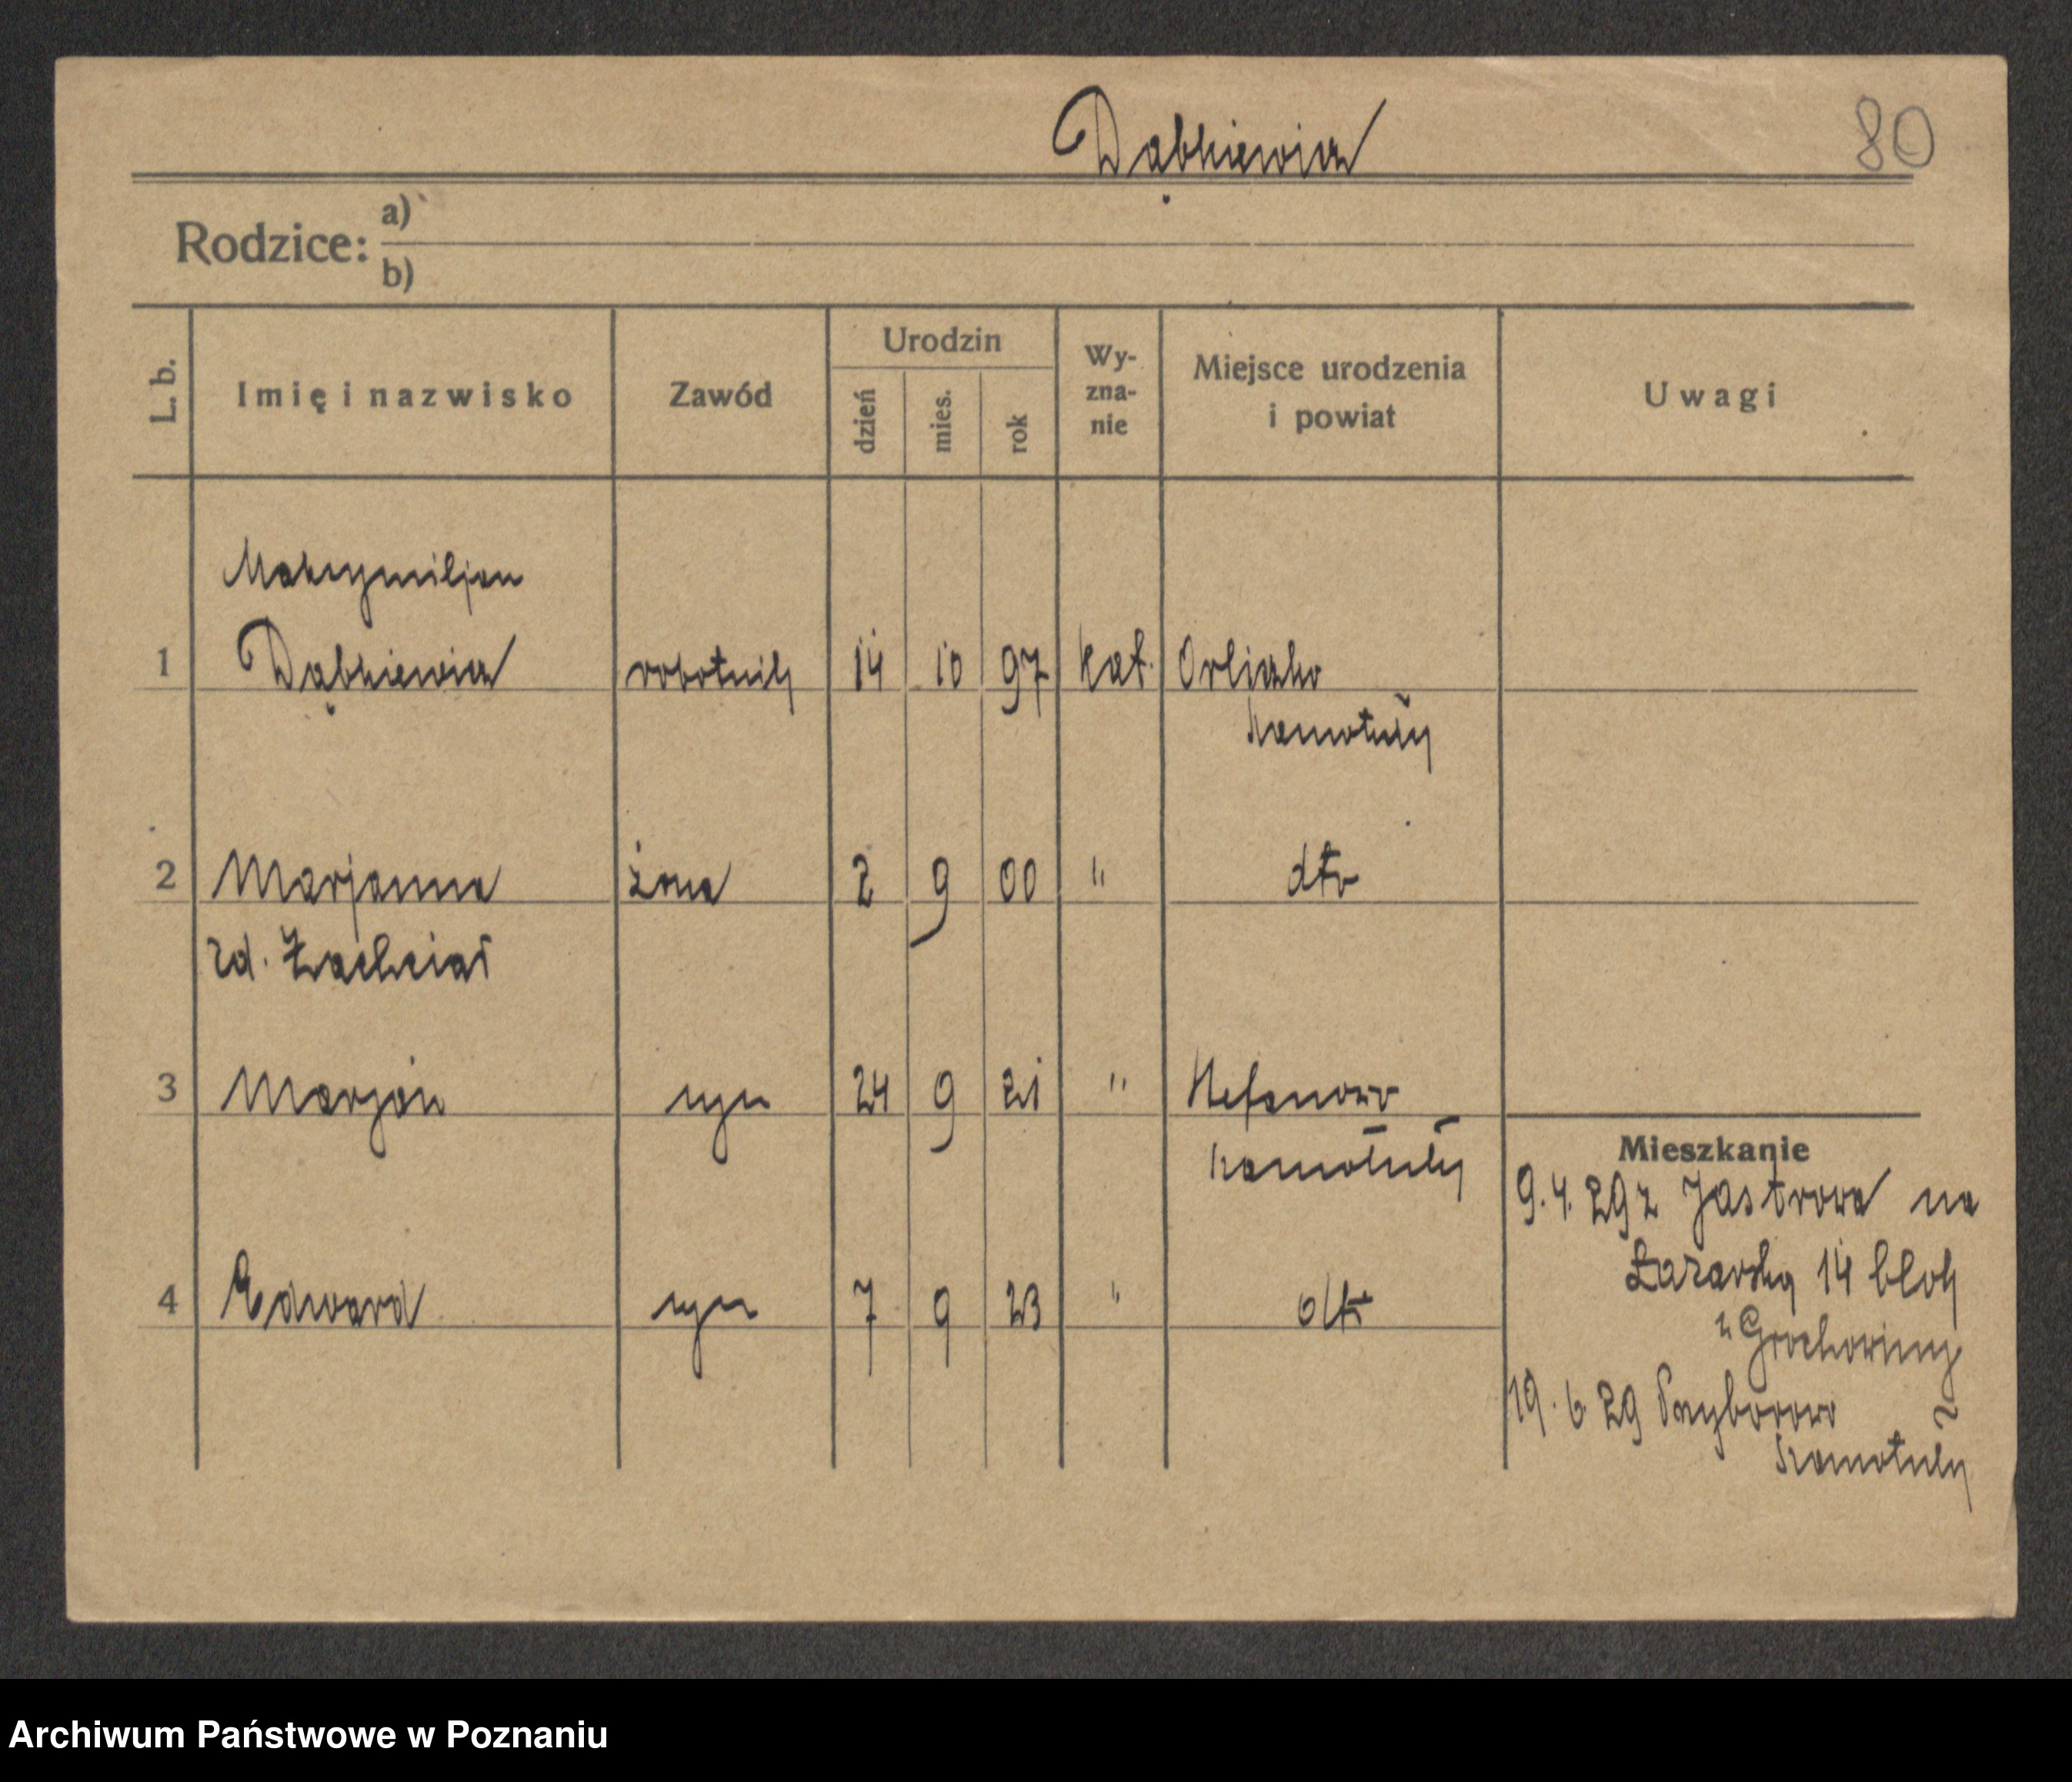 Dąbkiewicz
80
Rodzice: a)
b)
L. b.
Imię i nazwisko
Zawód
Urodzin
dzień
mies.
rok
Wy-
zna-
nie
Miejsce urodzenia
i powiat
Uwagi
Maksymiljan
1 Dąbkiewicz robotnik 14 10 97 kat. Orliczko
Szamotuły
2 Marjanna żona 2 9 00 " dto
zd.
3 Marjan syn 24 9 21 " Stefanowo
Szamotuły
4 Edward syn 7 9 23 " dto
Mieszkanie
9. 4. 29 z Jastrowa na
Łazarską 14 blok
u
19. 6. 29 Przyborowo
Szamotuły
Archiwum Państwowe w Poznaniu